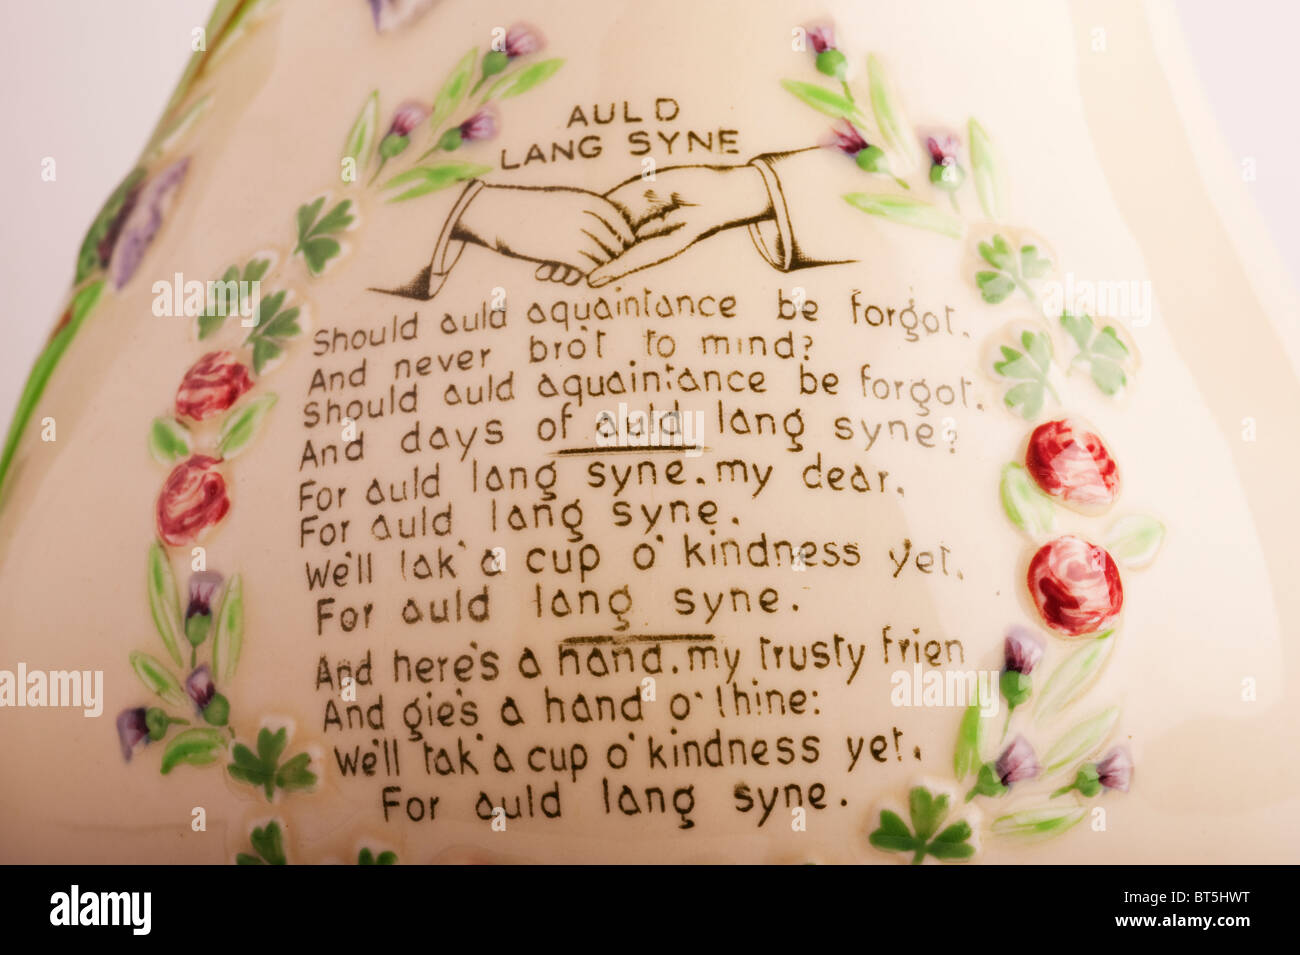 AULD
LANG SYNE
Should auld aquaintance be forgot.
And never bro't to mind?
Should auld aquaintance be forgot.
And days of auld lang syne?
For auld lang syne. my dear.
For auld lang syne.
We'll tak' a cup o' kindness yet.
For auld lang syne.
And here's a hand. my trusty frien
And gie's a hand o' thine:
We'll tak' a cup o' kindness yet.
For auld lang syne.
alamy
alamy
Image ID: BT5HWT
www.alamy.com